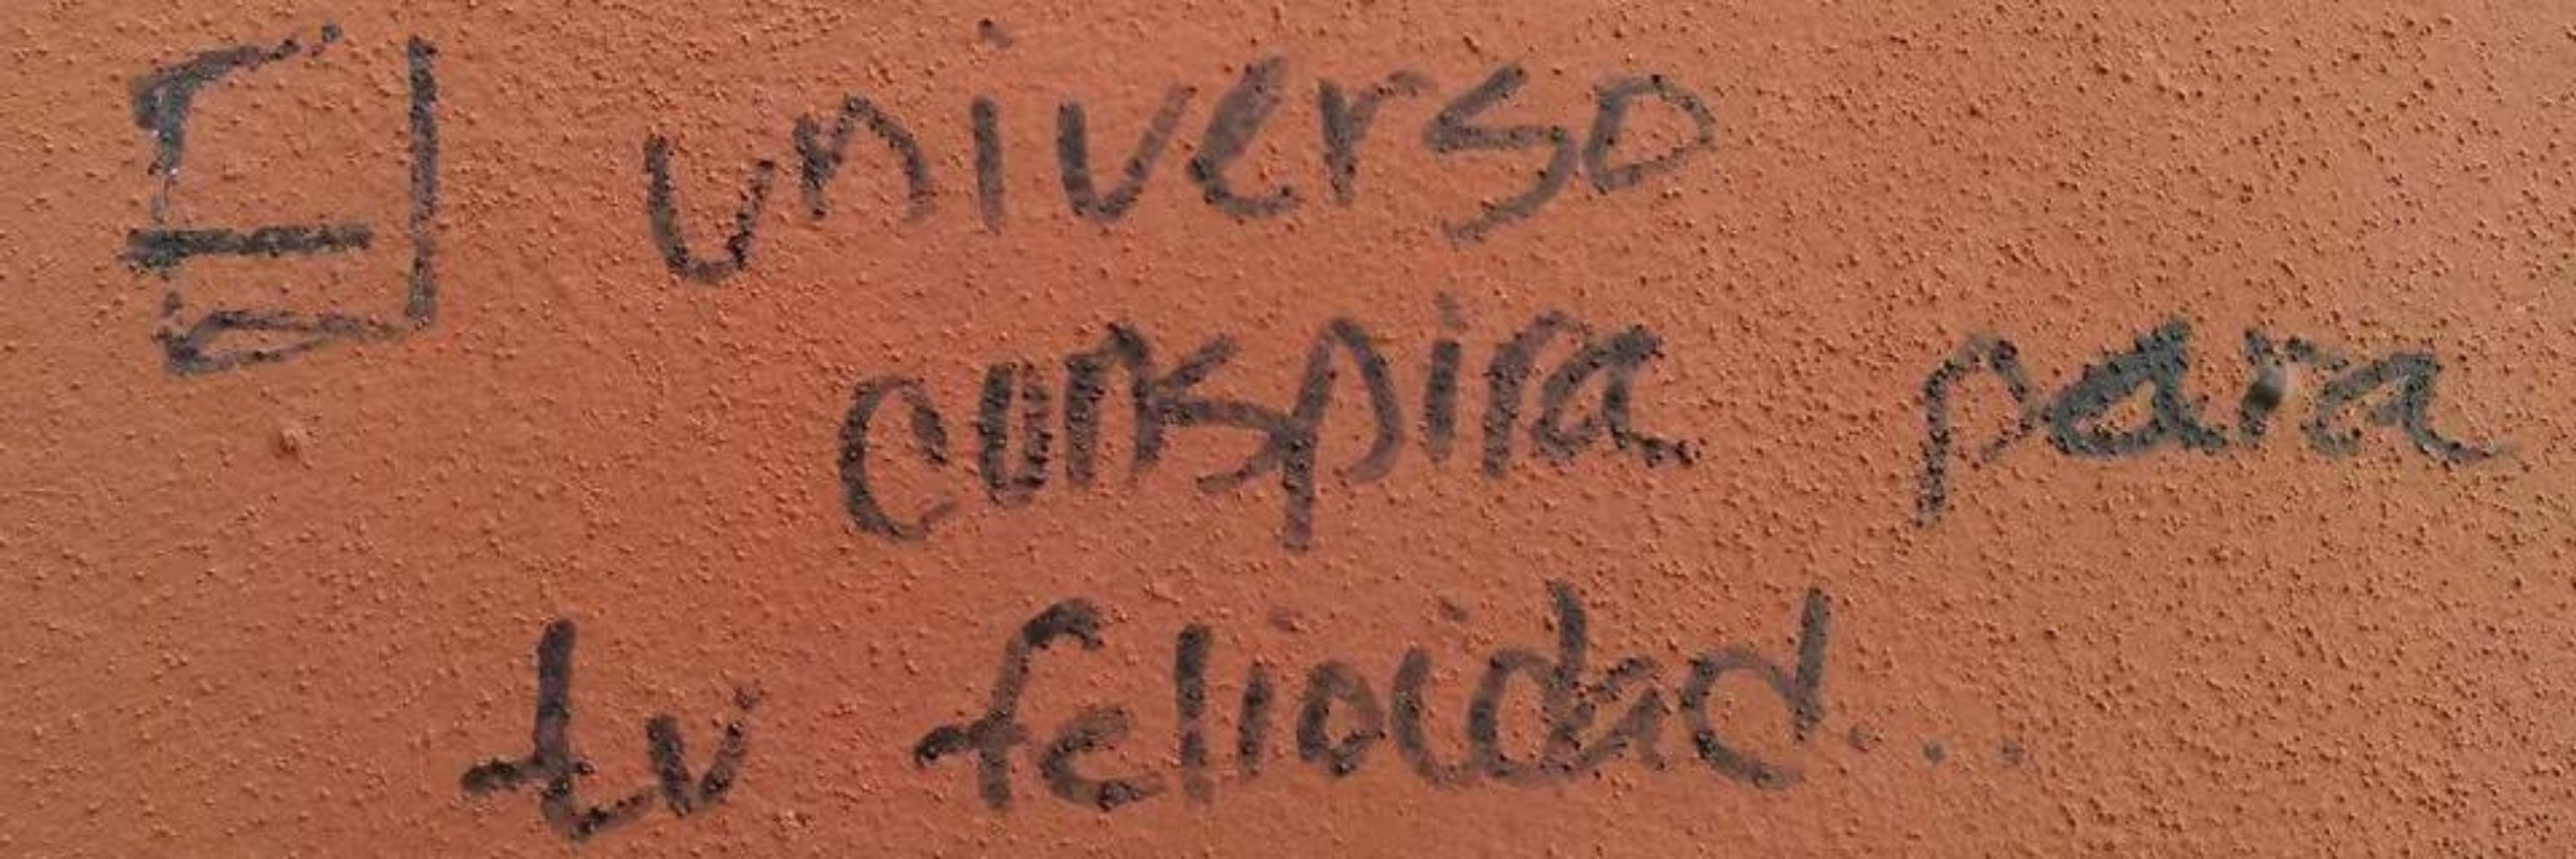 El universo
conspira para
tu felicidad...